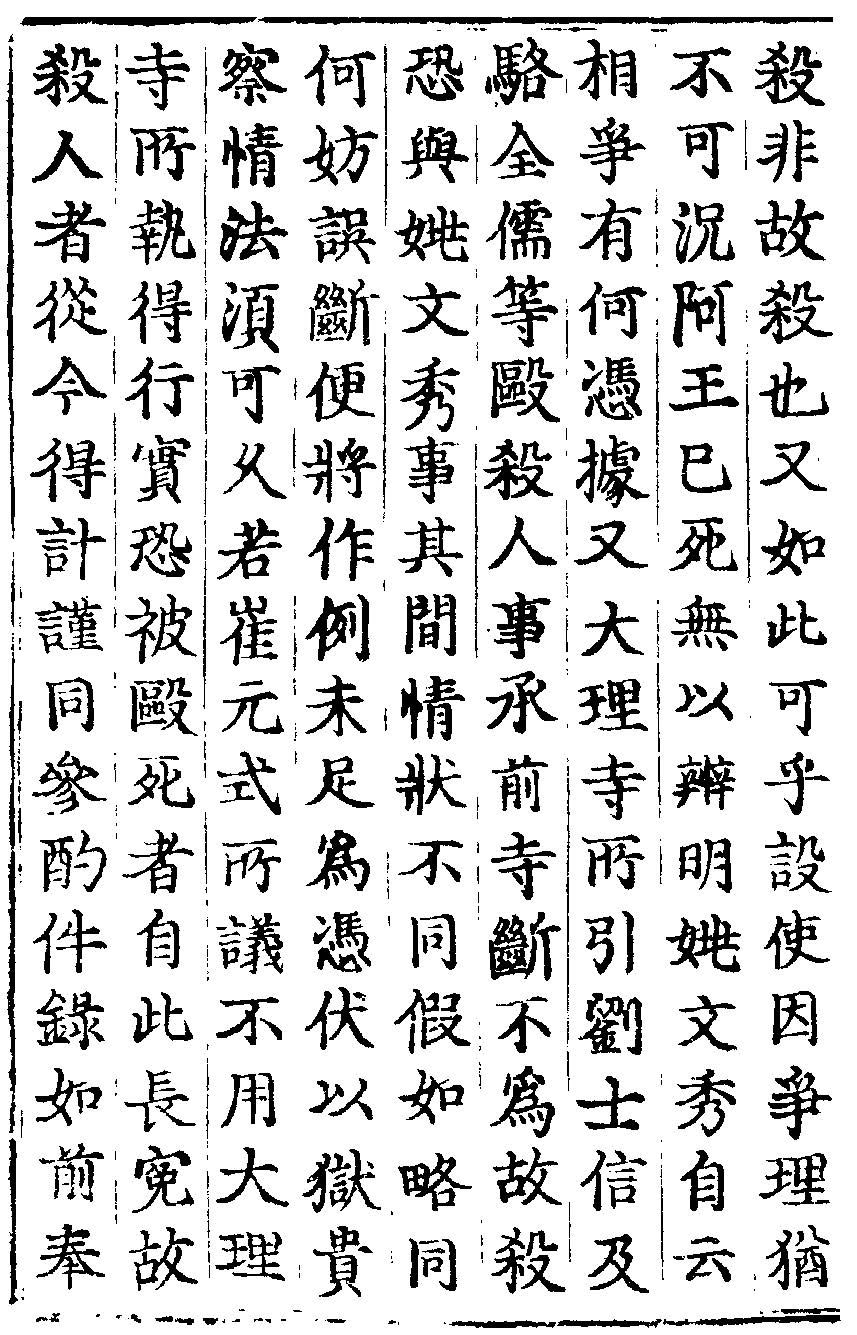 殺非故殺也又如此可乎設使因爭理猶
不可況阿王已死無以辨明姚文秀自云
相爭有何憑據又大理寺所引劉士信及
駱全儒等毆殺人事承前寺斷不爲故殺
恐與姚文秀事其間情狀不同假如略同
何妨誤斷便將作例未足爲憑伏以獄貴
察情法須可久若崔元式所議不用大理
寺所執得行實恐被毆死者自此長寃故
殺人者從今得計謹同參酌件錄如前奉